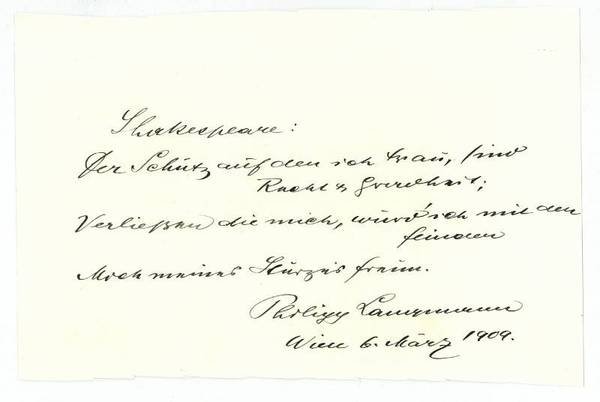 Shakespeare:
Der Schutz auf den ich trau, sind
Recht & Gradheit;
Verließen die mich, würd' ich mit den
Feinden
Mich meines Sturzes freun.
Philipp Langmann
Wien 6. März 1909.